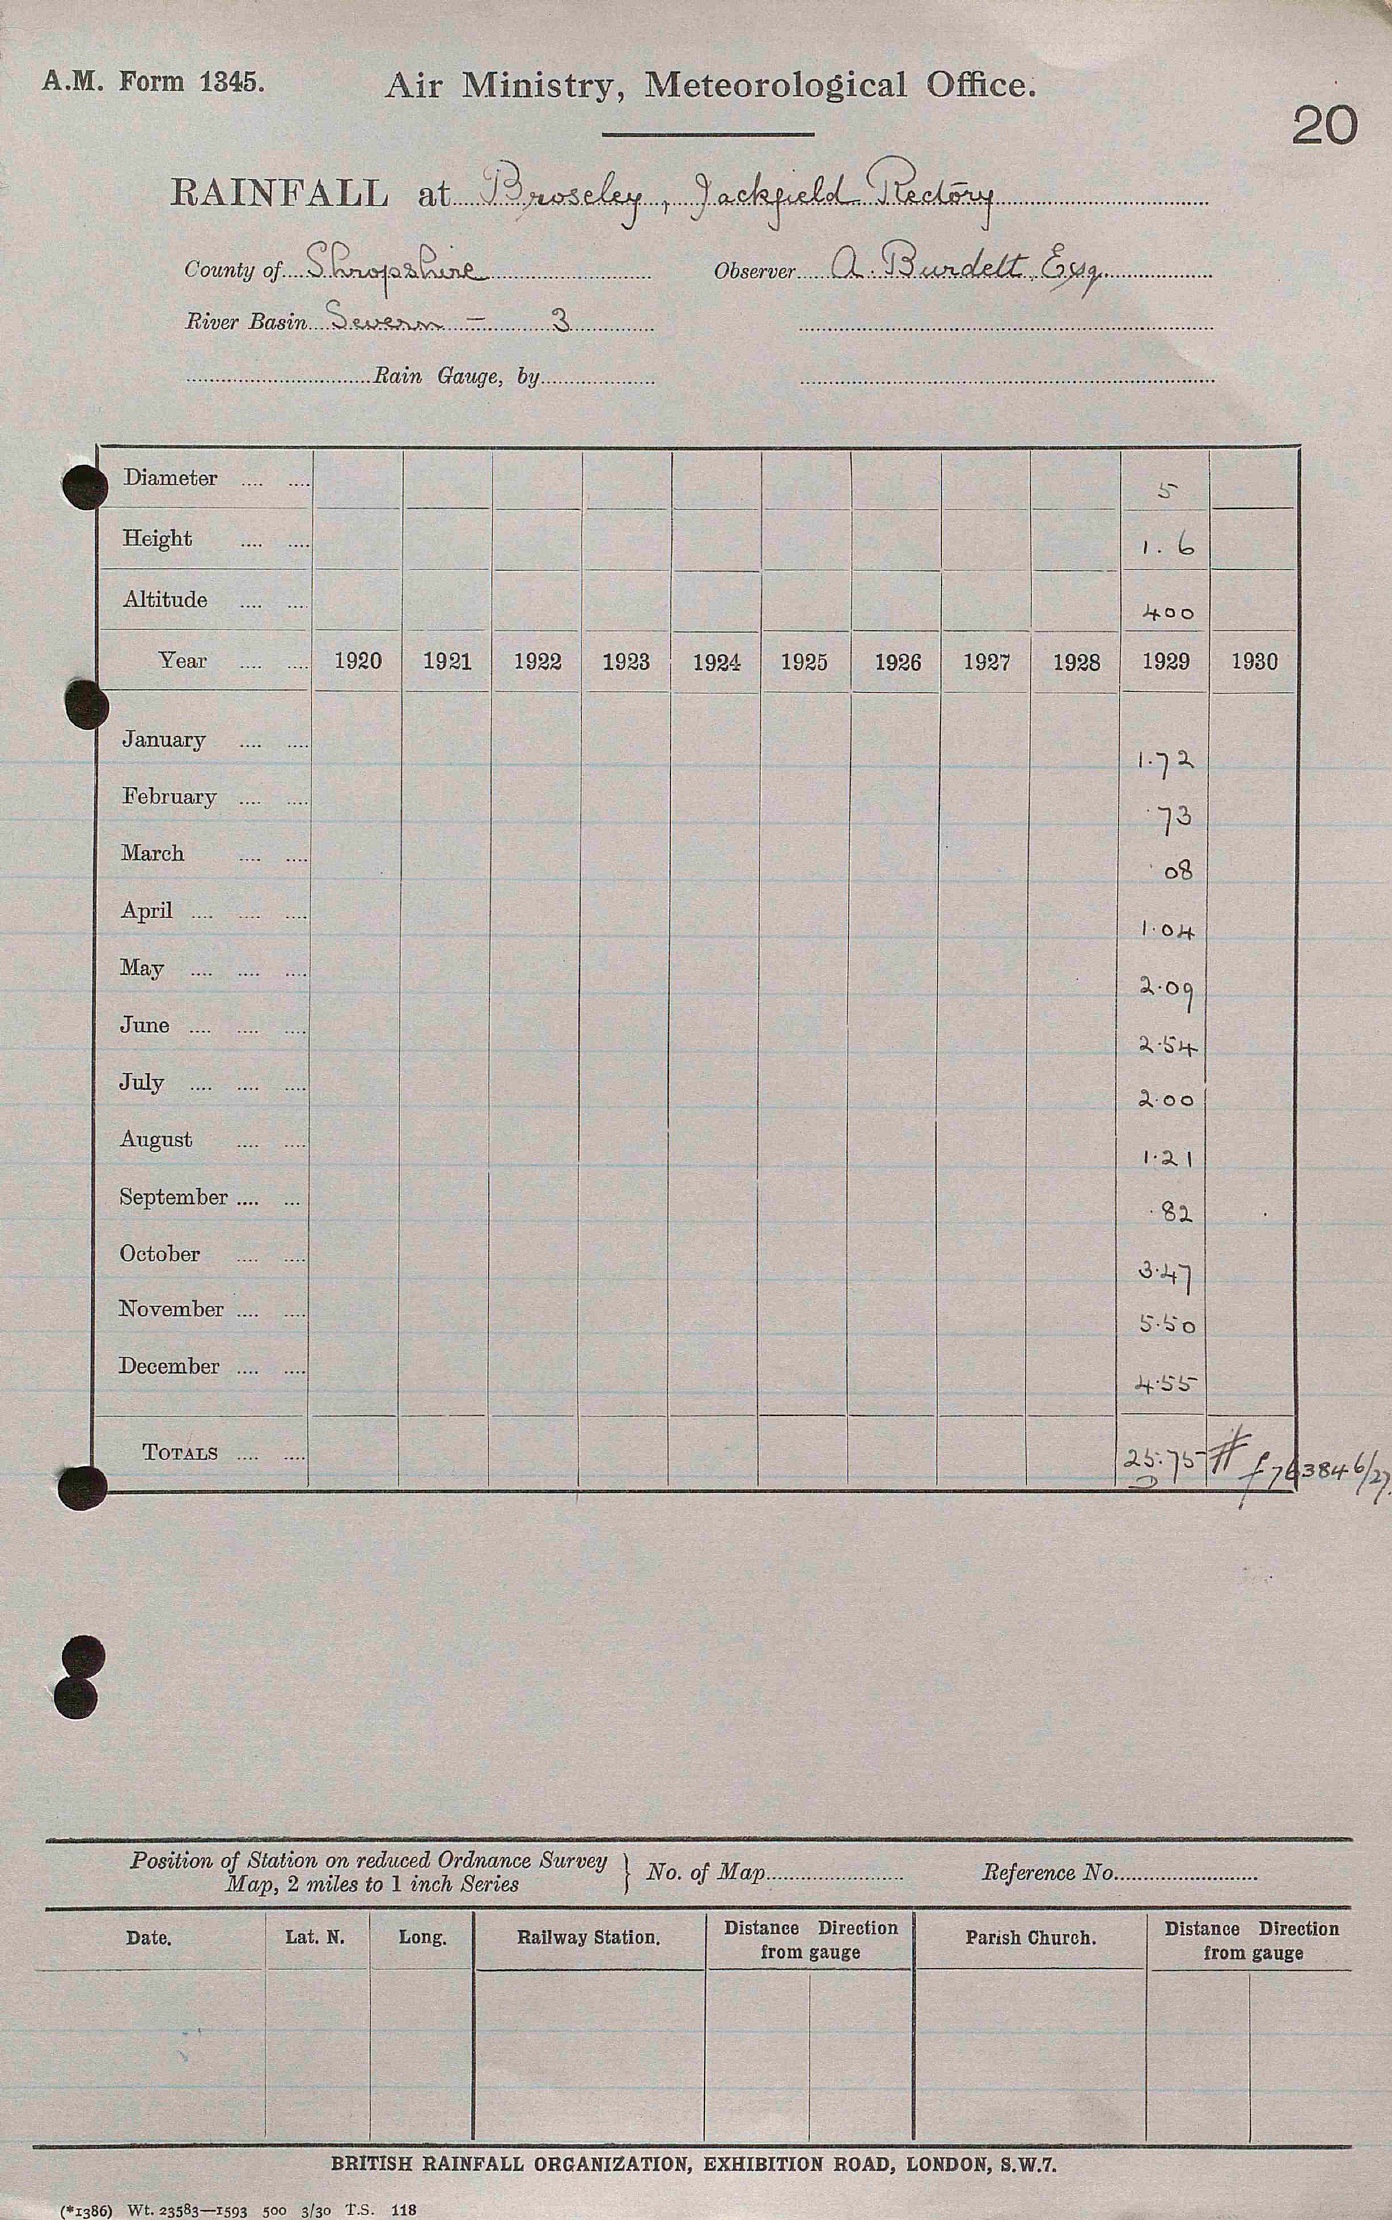 A.M. Form 1345.
Air Ministry, Meteorological Office.
20
RAINFALL at Broseley, Jackfield Rectory
County of Shropshire Observer A. Burdett Esq.
River Basin Severn – 3
Rain Gauge, by
Diameter .... .... 5
Height .... .... 1.6
Altitude .... .... 400
Year .... .... 1920 1921 1922 1923 1924 1925 1926 1927 1928 1929 1930
January .... .... 1.72
February .... .... .73
March .... .... .08
April .... .... .... 1.04
May .... .... .... 2.09
June .... .... .... 2.54
July .... .... .... 2.00
August .... .... 1.21
September .... ... .82
October .... .... 3.47
November .... .... 5.50
December .... .... 4.55
TOTALS .... .... 25.75 # f763846/27.
Position of Station on reduced Ordnance Survey } No. of Map Reference No.
Map, 2 miles to 1 inch Series
Date. Lat. N. Long. Railway Station. Distance Direction Parish Church. Distance Direction
from gauge from gauge
BRITISH RAINFALL ORGANIZATION, EXHIBITION ROAD, LONDON, S.W.7.
(*1386) Wt. 23583—1593 500 3/30 T.S. 118